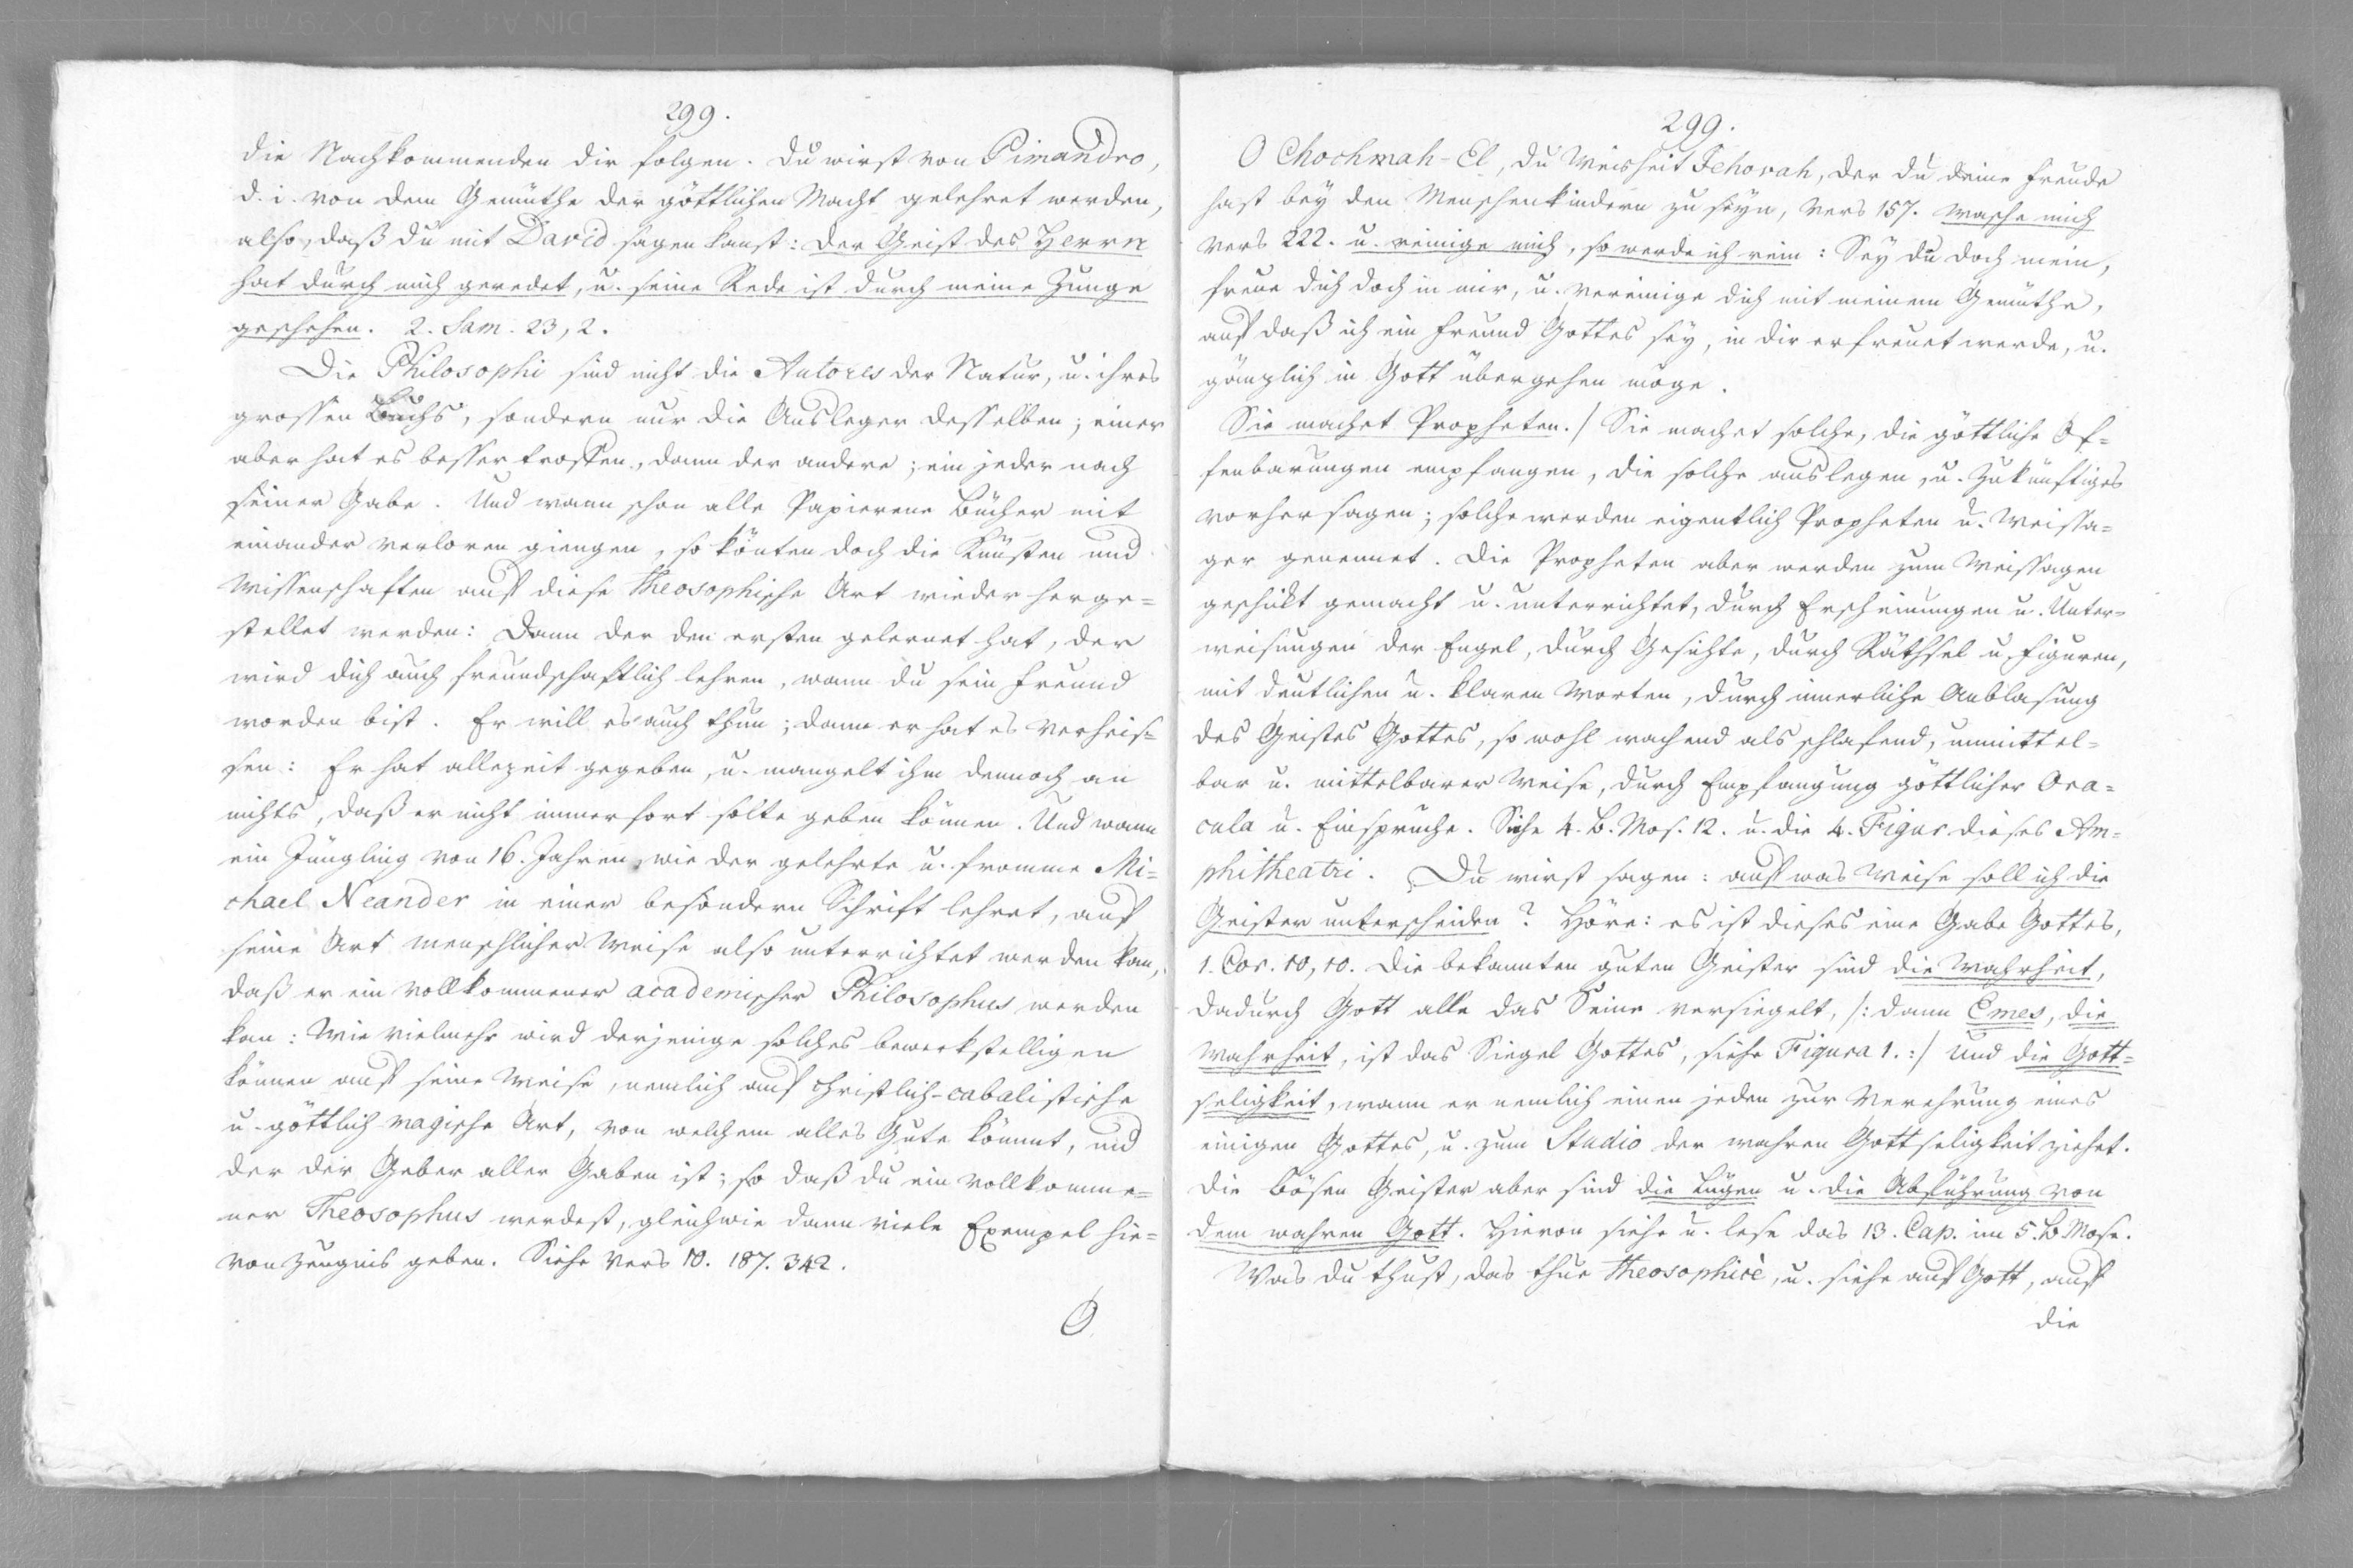 299.
die Nachkommenden dir folgen. Du wirst von Pimandro,
d. i. von dem Gemüthe der göttlichen Macht gelehret werden,
also, daß du mit David sagen kanst: der Geist des Herrn
hat durch mich geredet, u. seine Rede ist durch meine Zunge
geschehen. 2. Sam. 23, 2.
Die Philosophi sind nicht die Autores der Natur, u. ihres
grossen Buchs, sondern nur die Ausleger desselben; einer
aber hat es besser troffen, dann der andere; ein jeder nach
seiner Gabe. Und wann schon alle Papierene Bücher mit
einander verloren giengen, so könten doch die Künsten und
Wissenschaften auf diese Theosophische Art wieder herge=
stellet werden: Dann der den ersten gelernet hat, der
wird dich auch freundschaftlich lehren, wann du sein Freund
worden bist. Er will es auch thun; dann er hat es verheis=
sen: Er hat allezeit gegeben, u. mangelt ihm dennoch an
nichts, daß er nicht immerfort solte geben können. Und wann
ein Jüngling von 16. Jahren, wie der gelehrte u. fromme Mi=
chael Neander in einer besondern Schrift lehret, auf
seine Art menschlicher Weise also unterrichtet werden kan,
daß er ein vollkommener academischer Philosophus werden
kan: Wie vielmehr wird derjenige solches bewerkstelligen
können auf seine Weise, nemlich auf christlich-cabalistische
u. göttlich-magische Art, von welchem alles Gute kömmt, und
der der Geber aller Gaben ist; so daß du ein vollkomme=
ner Theosophus werdest, gleichwie dann viele Exempel hie=
von Zeugnis geben. Siehe Vers 10. 187. 342.
O
299.
O Chochmah-El, du Weisheit Jehovah, der du deine Freude
hast bey den Menschenkindern zu seyn, Vers 157. wasche mich
Vers 222. u. reinige mich, so werde ich rein: Sey du doch mein,
freue dich doch in mir, u. vereinige dich mit meinem Gemüthe,
auf daß ich ein Freund Gottes sey, in dir erfreuet werde, u.
gänzlich in Gott übergehen möge.
Sie machet Propheten./ Sie machet solche, die göttliche Of=
fenbarungen empfangen, die solche auslegen, u. Zukünftiges
vorher sagen; solche werden eigentlich Propheten u. Weissa=
ger genennet. Die Propheten aber werden zum Weissagen
geschikt gemacht u. unterrichtet, durch Erscheinungen u. Unter=
weisungen der Engel, durch Gesichte, durch Räthsel u. Figuren,
mit deutlichen u. klaren Worten, durch innerliche Anblasung
des Geistes Gottes, so wohl wachend als schlafend, unmittel=
bar u. mittelbarer Weise, durch Empfangung göttlicher Ora=
cula u. Einsprüche. Siehe 4. B. Mos. 12. u. die 4. Figur dieses Am=
phitheatri. Du wirst sagen: auf was Weise soll ich die
Geister unterscheiden? Höre: es ist dieses eine Gabe Gottes,
1. Cor. 10, 10. Die bekannten guten Geister sind die Wahrheit,
dadurch Gott alle das Seine versiegelt, /: dann Emes, die
Wahrheit, ist das Siegel Gottes, siehe Figura 1. :/ und die Gott=
seligkeit, wann er nemlich einen jeden zur Verehrung eines
einigen Gottes, u. zum Studio der wahren Gottseligkeit ziehet.
Die bösen Geister aber sind die Lügen u. die Abführung von
dem wahren Gott. Hievon siehe u. lese das 13. Cap. im 5. B. Mose.
Was du thust, das thue theosophicè, u. siehe auf Gott, auf
die